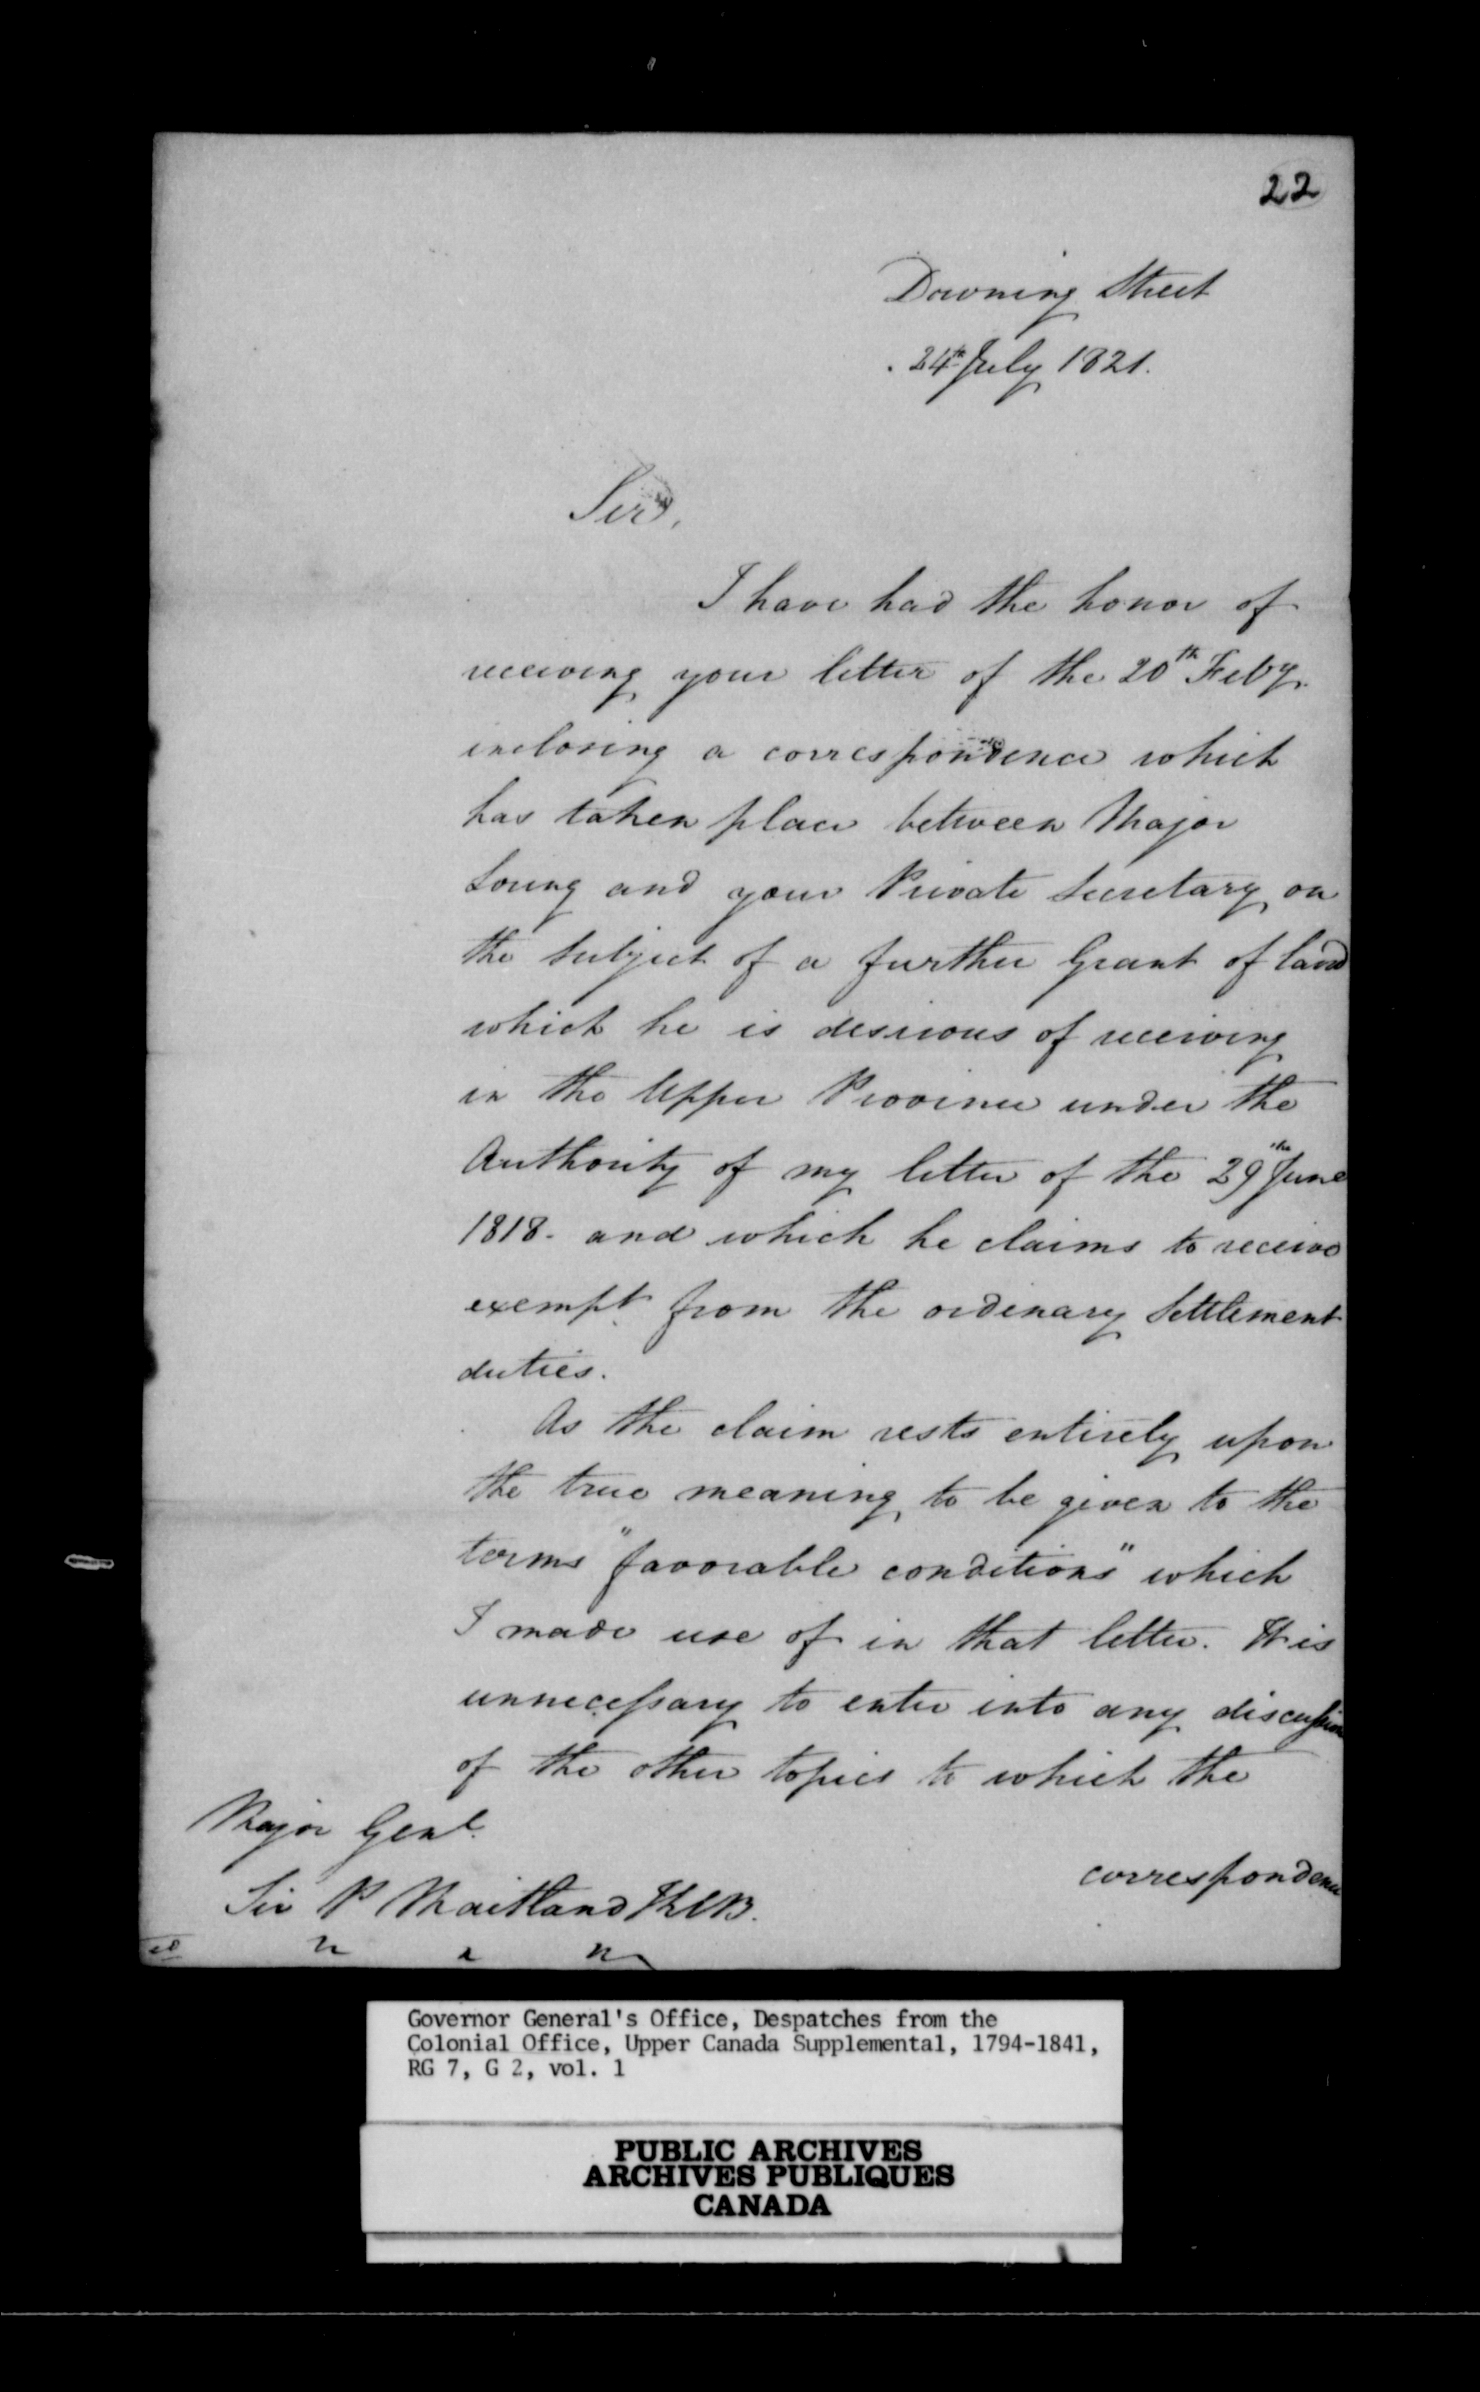 22
Downing Street
24th July 1821.
Sir,
I have had the honor of
receiving your letter of the 20th Feby.
inclosing a correspondence which
has taken place between Major
Loring and your Private Secretary on
the subject of a further Grant of land
which he is desirous of receiving
in the Upper Province under the
Authority of my letter of the 29th June
1818. and which he claims to receive
exempt from the ordinary Settlement
duties.
As the claim rests entirely upon
the true meaning, to be given to the
terms "favorable conditions" which
I made use of in that letter. It is
unnecessary to enter into any discussion
of the other topics to which the
correspondence
Major Genl.
Sir P Maitland KCB.
Governor General's Office, Despatches from the
Colonial Office, Upper Canada Supplemental, 1794-1841,
RG 7, G 2, vol. 1
PUBLIC ARCHIVES
ARCHIVES PUBLIQUES
CANADA